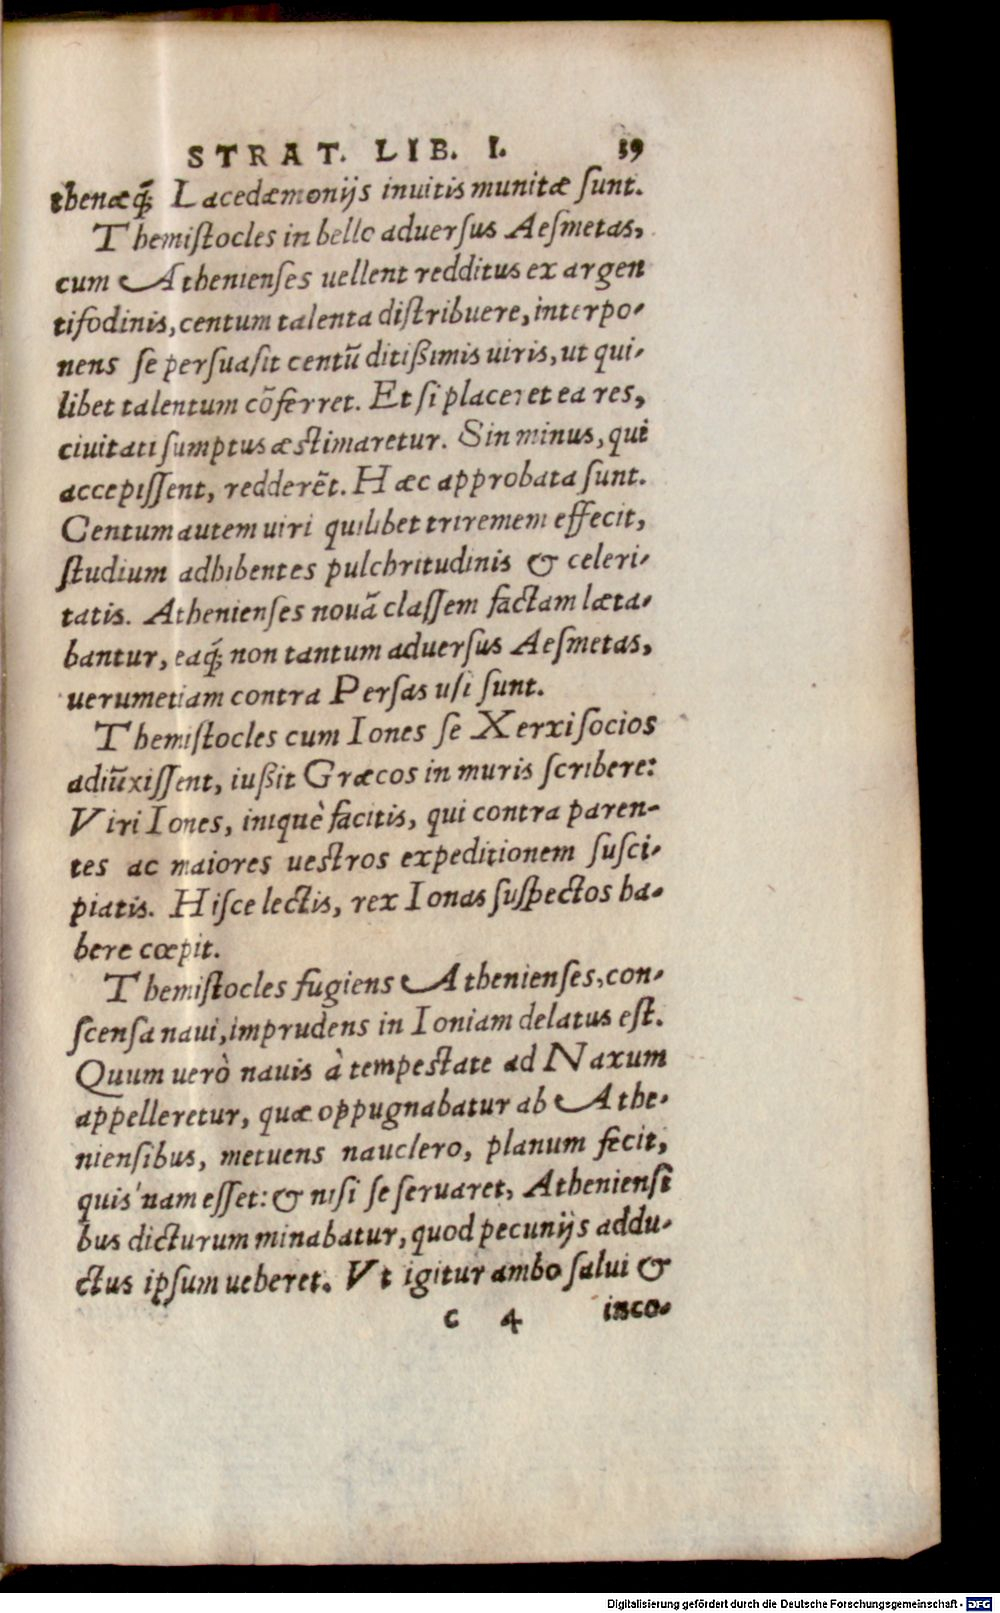 STRAT. LIB. I. 39
thenæq́; Lacedæmonijs inuitis munitæ ſunt.
Themiſtocles in bello aduerſus Aeſmetas,
cum Athenienſes uellent redditus ex argen
tifodinis, centum talenta diſtribuere, interpo-
nens ſe perſuaſit centũ ditißimis uiris, ut qui-
libet talentum cõferret. Et ſi placeret ea res,
ciuitati ſumptus æstimaretur. Sin minus, qui
accepiſſent, redderẽt. Hæc approbata ſunt.
Centum autem uiri quilibet triremem effecit,
ſtudium adhibentes pulchritudinis & celeri-
tatis. Athenienſes nouã claſſem factam læta-
bantur, eaq́; non tantum aduerſus Aeſmetas,
uerumetiam contra Perſas uſi ſunt.
Themiſtocles cum Iones ſe Xerxi ſocios
adiũxiſſent, iußit Græcos in muris ſcribere:
Viri Iones, iniquè facitis, qui contra paren-
tes ac maiores uestros expeditionem ſuſci-
piatis. Hiſce lectis, rex Ionas ſuſpectos ha-
bere cœpit.
Themiſtocles fugiens Athenienſes, con-
ſcenſa naui, imprudens in Ioniam delatus eſt.
Quum uerò nauis à tempestate ad Naxum
appelleretur, quæ oppugnabatur ab Athe-
nienſibus, metuens nauclero, planum fecit,
quis'nam eſſet: & niſi ſe ſeruaret, Athenienſi
bus dicturum minabatur, quod pecunijs addu-
ctus ipſum ueheret. Vt igitur ambo ſalui &
c 4 inco-
Digitalisierung gefördert durch die Deutsche Forschungsgemeinschaft - DFG